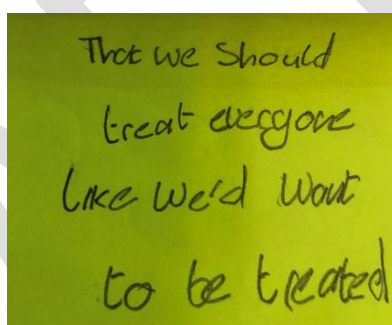 That we should
treat everyone
like we'd want
to be treated